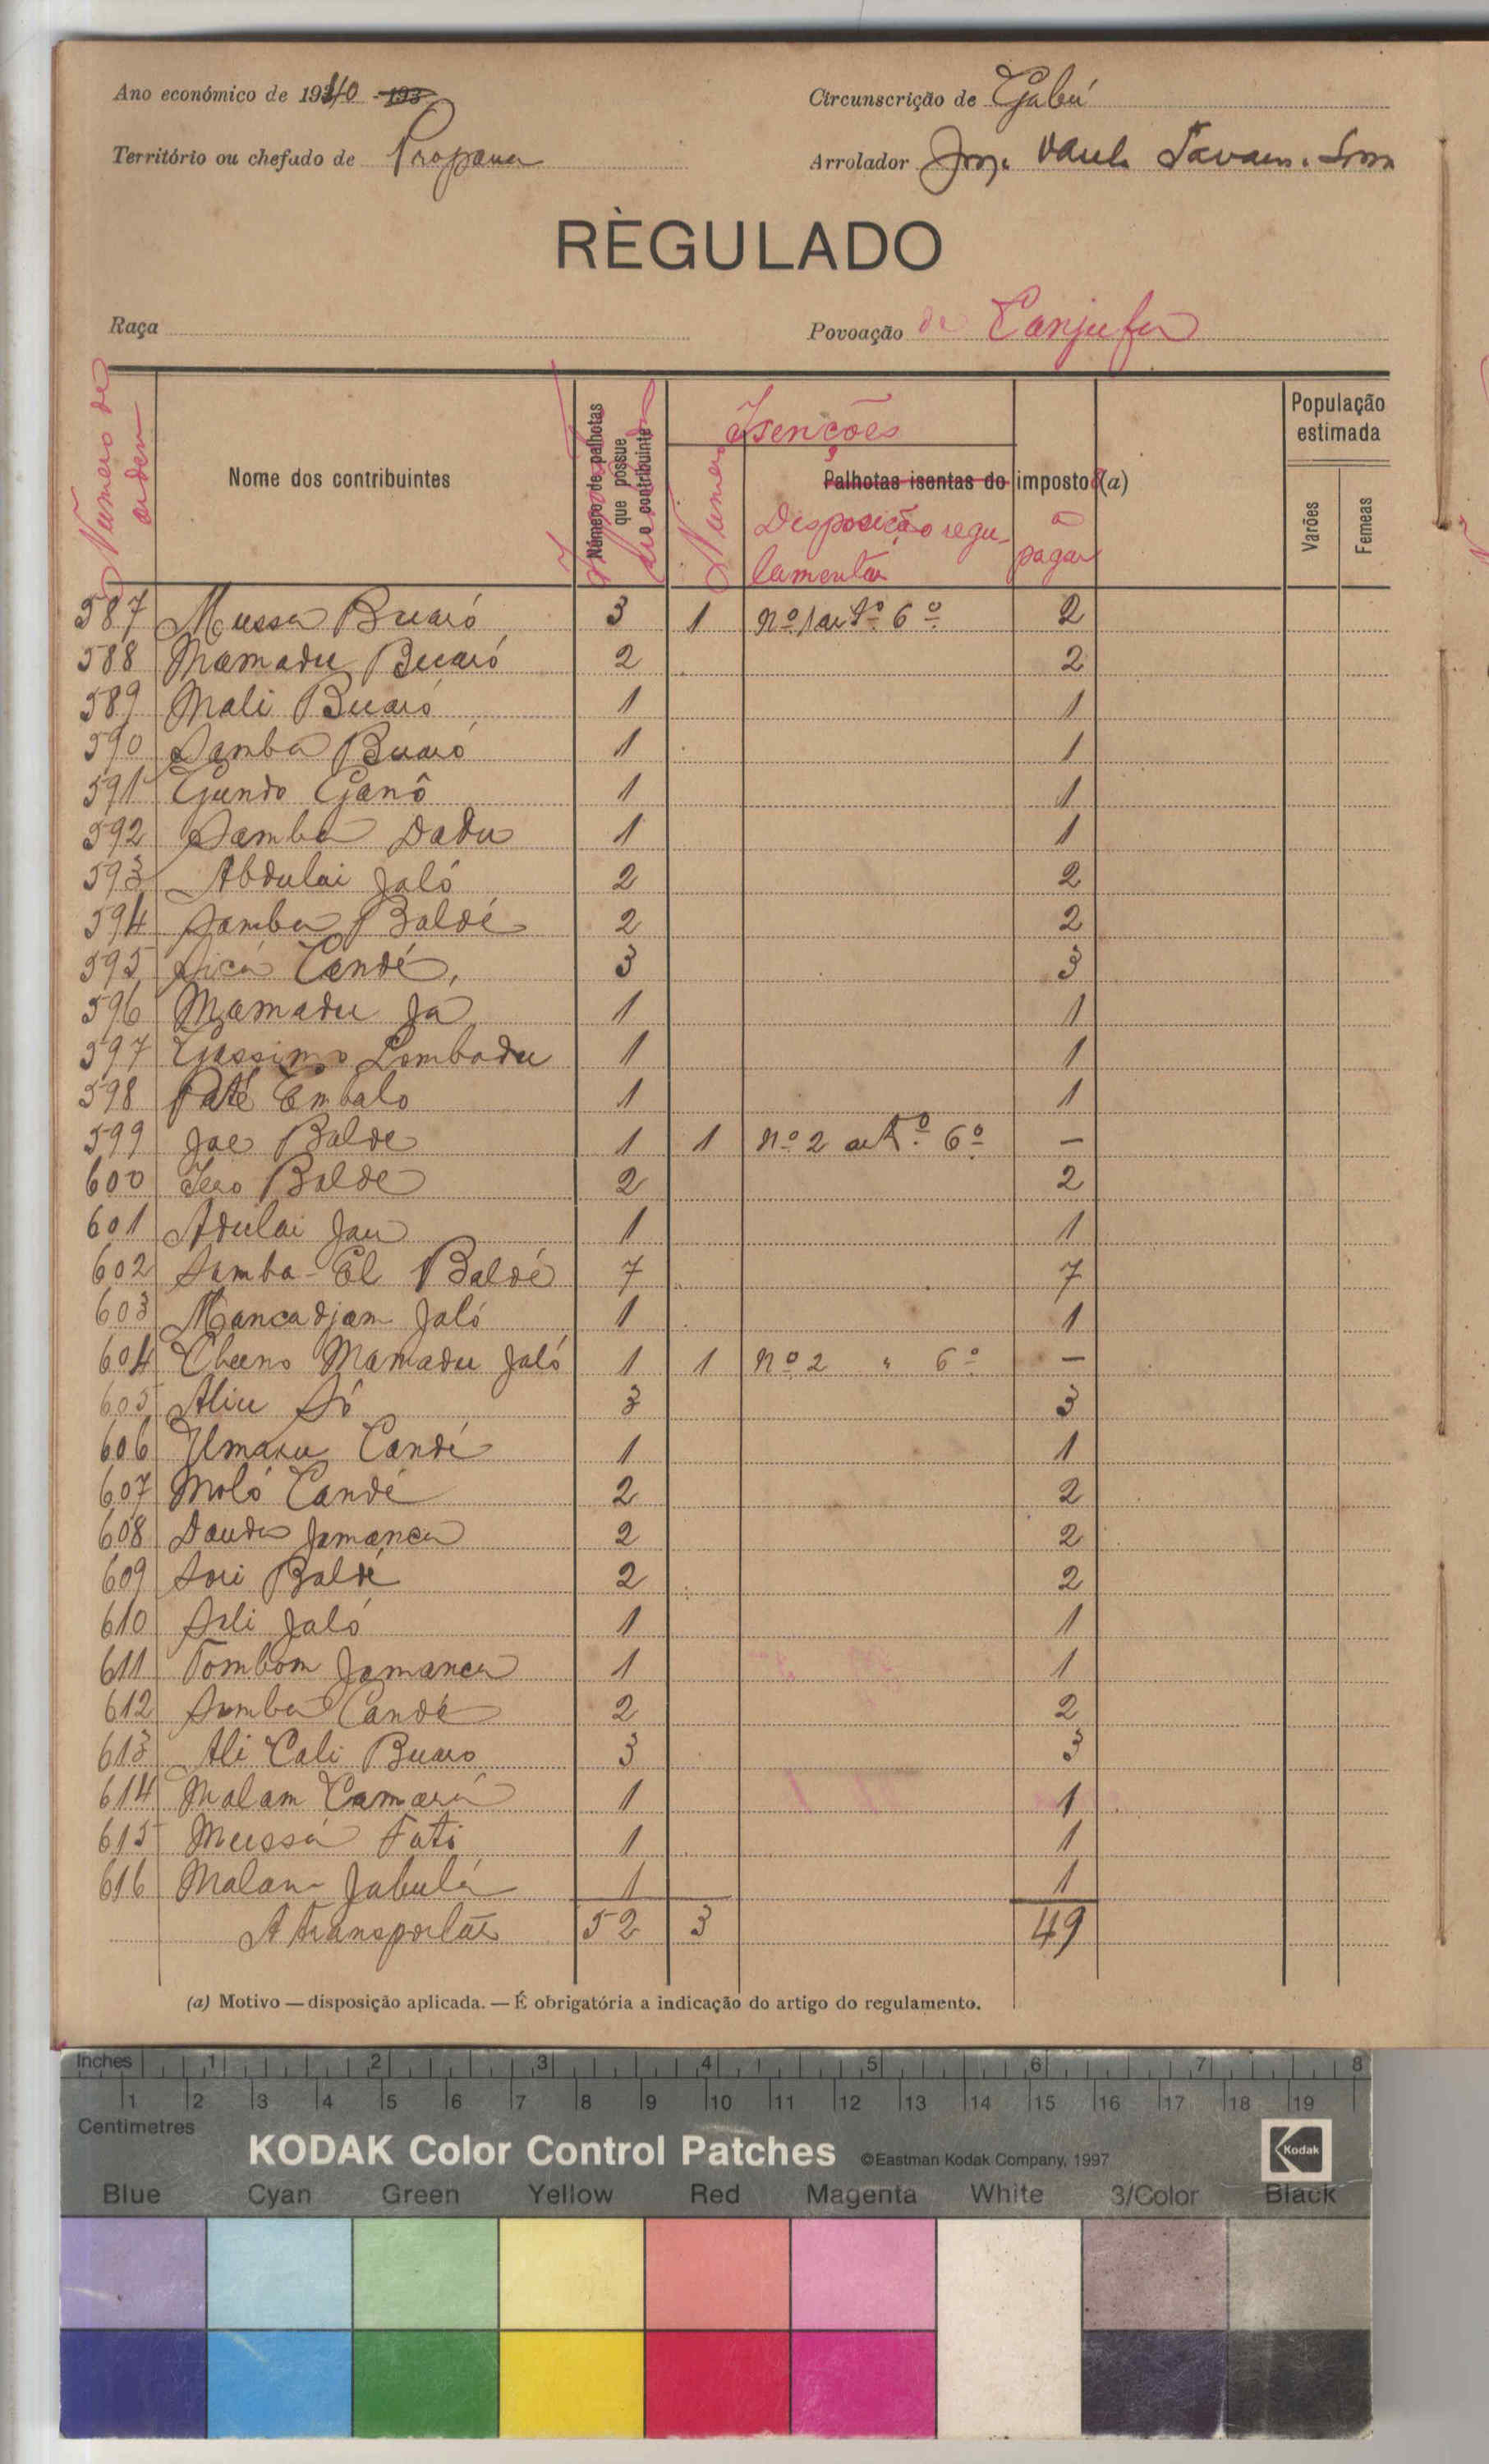 Ano económico de 1940 - 193
Circunscrição de Gabú
Território ou chefado de Propana
Arrolador
RÈGULADO
Raça
Povoação de Canjufa
Numero de ordem
Nome dos contribuintes
Número de palhotas que possue o contribuinte
Isenções
Numero
Palhotas isentas do imposto (a)
Disposição regulamentar
a pagar
População estimada
Varões
Femeas
587 Mussa Buaró 3 1 nº 1 artº 6º 2
588 Mamadu Buaró 2 2
589 Mali Buaró 1 1
590 Samba Buaró 1 1
591 Gundo Ganô 1 1
592 Samba Dadu 1 1
593 Abdulai Jaló 2 2
594 Samba Baldé 2 2
595 Sica Candé 3 3
596 Mamadu Ja 1 1
597 Gassimo Lombadu 1 1
598 Paté Embalo 1 1
599 Jae Balde 1 1 nº 2 artº 6º —
600 Iero Balde 2 2
601 Adulai Jau 1 1
602 Samba-El Baldé 7 7
603 Mancadjam Jaló 1 1
604 Cherno Mamadu Jaló 1 1 nº 2 " 6º —
605 Aliu Só 3 3
606 Umaru Candé 1 1
607 Moló Candé 2 2
608 Dauda Jamanca 2 2
609 Sori Baldé 2 2
610 Sili Jaló 1 1
611 Tombom Jamanca 1 1
612 Samba Candé 2 2
613 Ali Cali Buaro 3 3
614 Malam Camará 1 1
615 Mussá Fati 1 1
616 Malam Jabulá 1 1
A transportar 52 3 49
(a) Motivo — disposição aplicada. — É obrigatória a indicação do artigo do regulamento.
Inches 1 2 3 4 5 6 7 8
1 2 3 4 5 6 7 8 9 10 11 12 13 14 15 16 17 18 19
Centimetres
KODAK Color Control Patches ©Eastman Kodak Company, 1997 Kodak
Blue Cyan Green Yellow Red Magenta White 3/Color Black